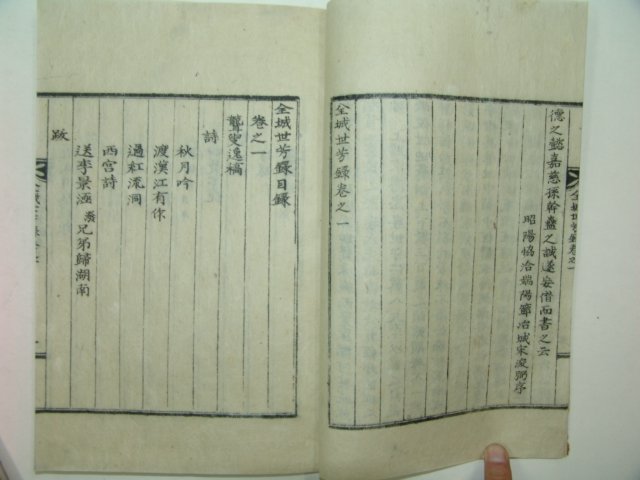 德之懿嘉慈孫幹蠱之誠遂妄僭而書之云
昭陽協洽端陽節冶城宋浚弼序
全城世芳錄卷之一
全城世芳錄目錄
卷之一
聾叟逸稿
詩
秋月吟
渡漢江有作
過紅流洞
西宮詩
送李景涵潑兄弟歸湖南
跋
全城世芳錄卷之一